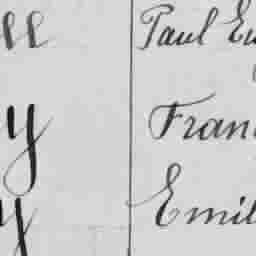 ll Paul Eu
y Fran
y Emil